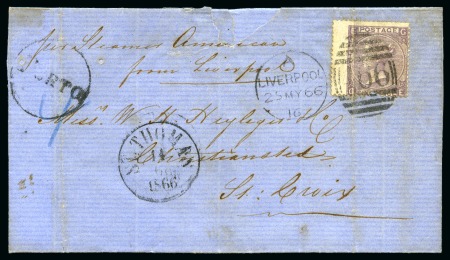 per Steamer American
from Liverpool
PORTO
LIVERPOOL
25 MY 66
POSTAGE
Miss W. H. Heyliger & Co
Christiansted
St. Croix
ST. THOMAS
1866